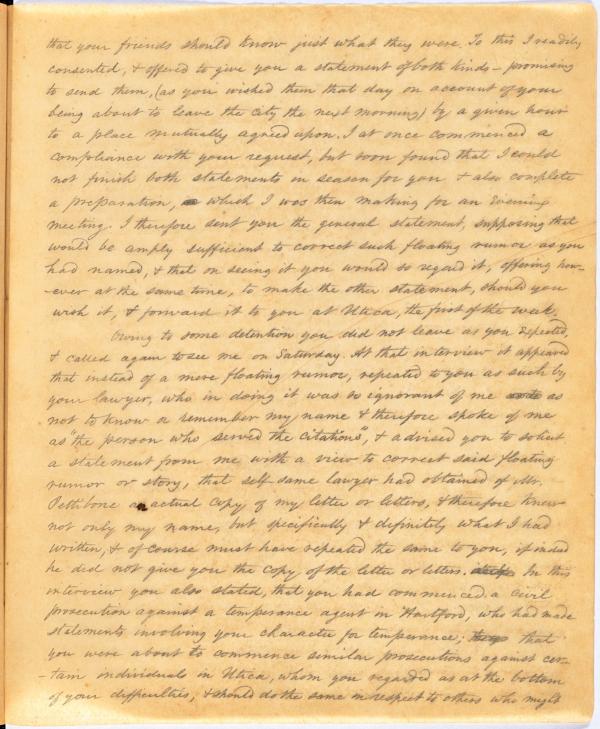 that your friends should know just what they were. To this I readily
consented, & offered to give you a statement of both kinds – promising
to send them, (as you wished them that day on account of your
being about to leave the city the next morning) by a given hour
to a place mutually agreed upon. I at once commenced a
compliance with your request, but soon found that I could
not finish both statements in season for you & also complete
a preparation, which I was then making for an Evening
meeting. I therefore sent you the general statement, supposing that
would be amply sufficient to correct such floating rumor as you
had named, & that on seeing it you would so regard it, offering how-
-ever at the same time, to make the other statement, should you
wish it, & forward it to you at Utica, the first of the week.
Owing to some detention you did not leave as you expected,
& called again to see me on Saturday. At that interview it appeared
that instead of a mere floating rumor, repeated to you as such by
your lawyer, who in doing it was so ignorant of me as
not to know or remember my name & therefore spoke of me
as "the person who served the citations", & advised you to solicit
a statement from me with a view to correct said floating
rumor or story, that self same lawyer had obtained of Mr.
Pettibone an actual copy of my letter or letters, & therefore knew
not only my name, but specifically & definitely what I had
written, & of course must have repeated the same to you, if indeed
he did not give you the copy of the letter or letters. In this
interview you also stated, that you had commenced a civil
prosecution against a temperance agent in Hartford, who had made
statements involving your character for temperance; that
you were about to commence similar prosecutions against cer-
-tain individuals in Utica, whom you regarded as at the bottom
of your difficulties, & should do the same in respect to others who might